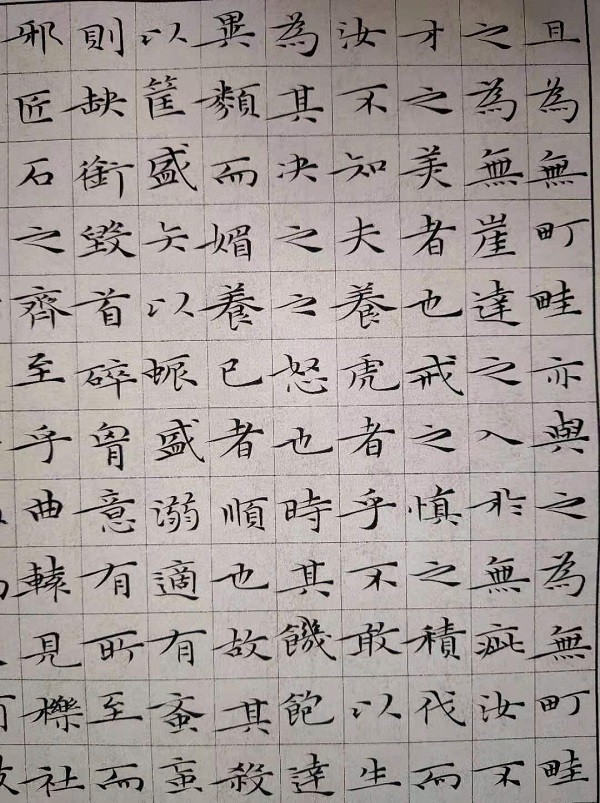 且為無町畦亦與之為無町畦
之為無崖達之入於無疵汝不
才之美者也戒之慎之積伐而
汝不知夫養虎者乎不敢以生
為其决之之怒也時其饑飽達
異類而媚養已者順也故其殺
以筐盛矢以蜄盛溺適有蚉䖟
則缺銜毀首碎胷意有所至而
邪匠石之齊至乎曲轅見櫟社